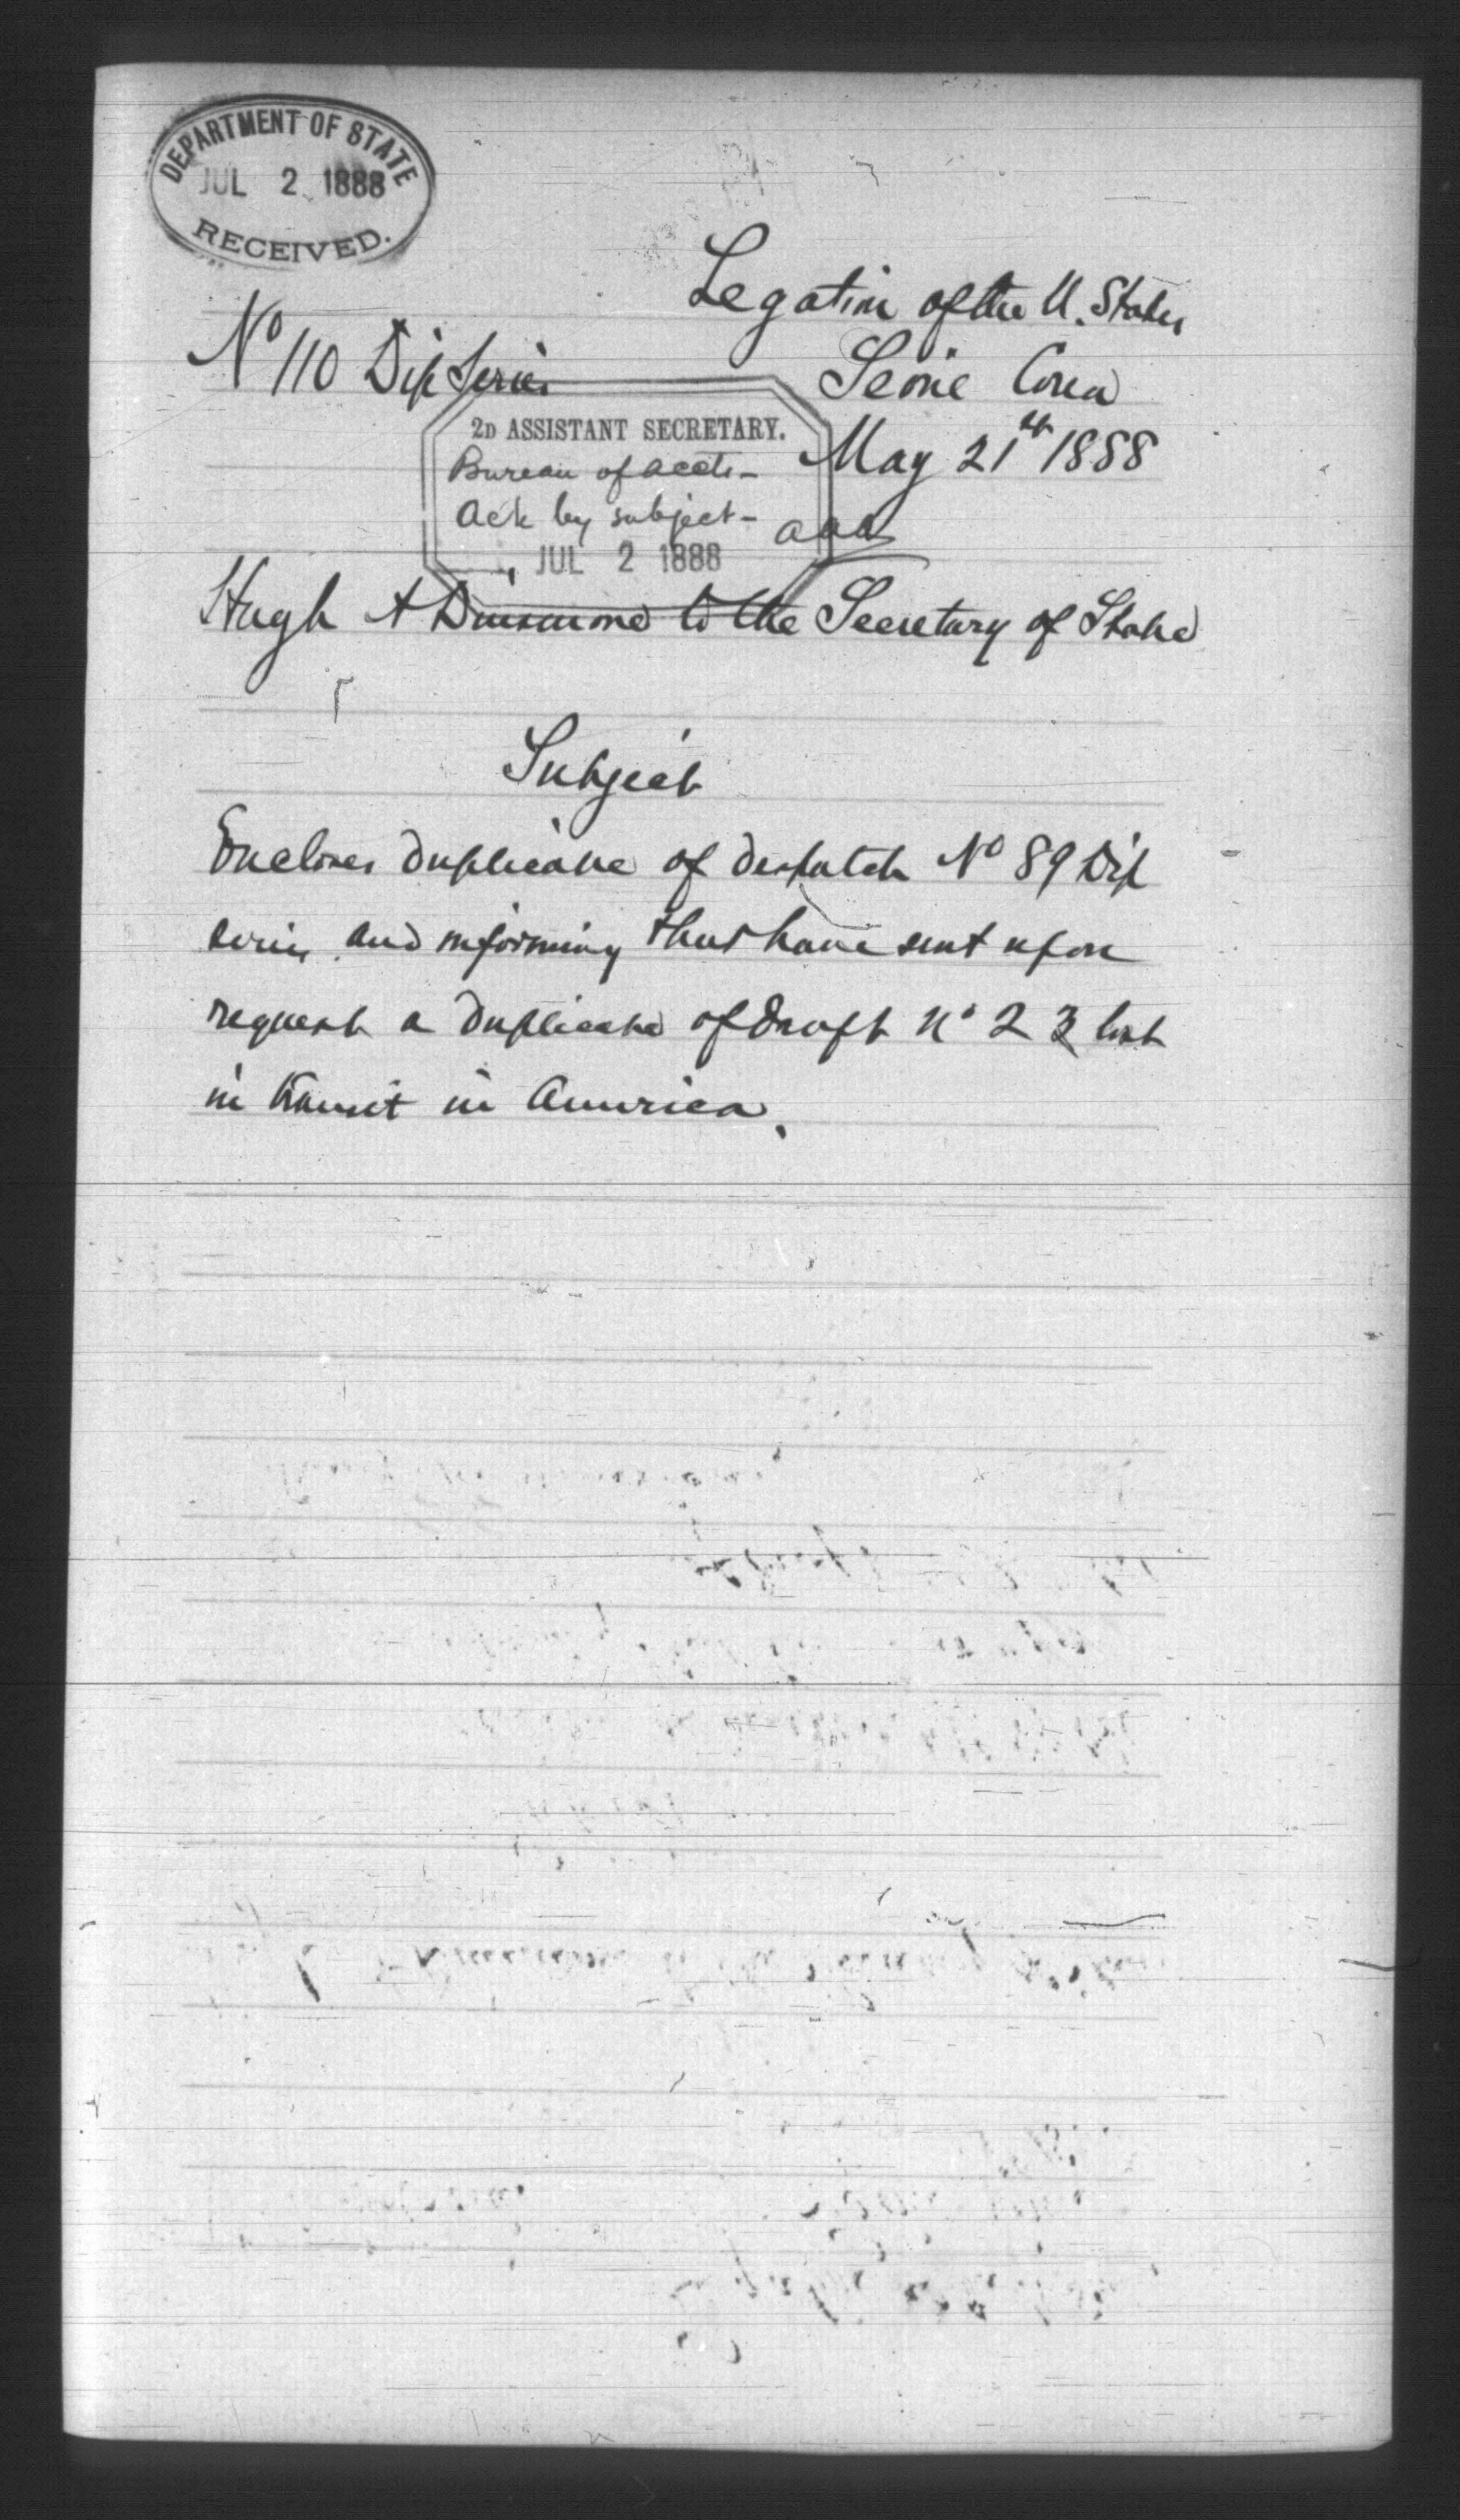 DEPARTMENT OF STATE
JUL 2 1888
RECEIVED.
Legation of the U. States
No 110 Dip Series
Seoul Corea
May 21st 1888
2D ASSISTANT SECRETARY.
Bureau of accts -
Ack by subject -
aaa
JUL 2 1888
Hugh A Dinsmore to the Secretary of State
Subject
Encloses duplicate of despatch No 89 Dip
series and informing that have sent upon
request a duplicate of draft No 23 lost
in transit in America.